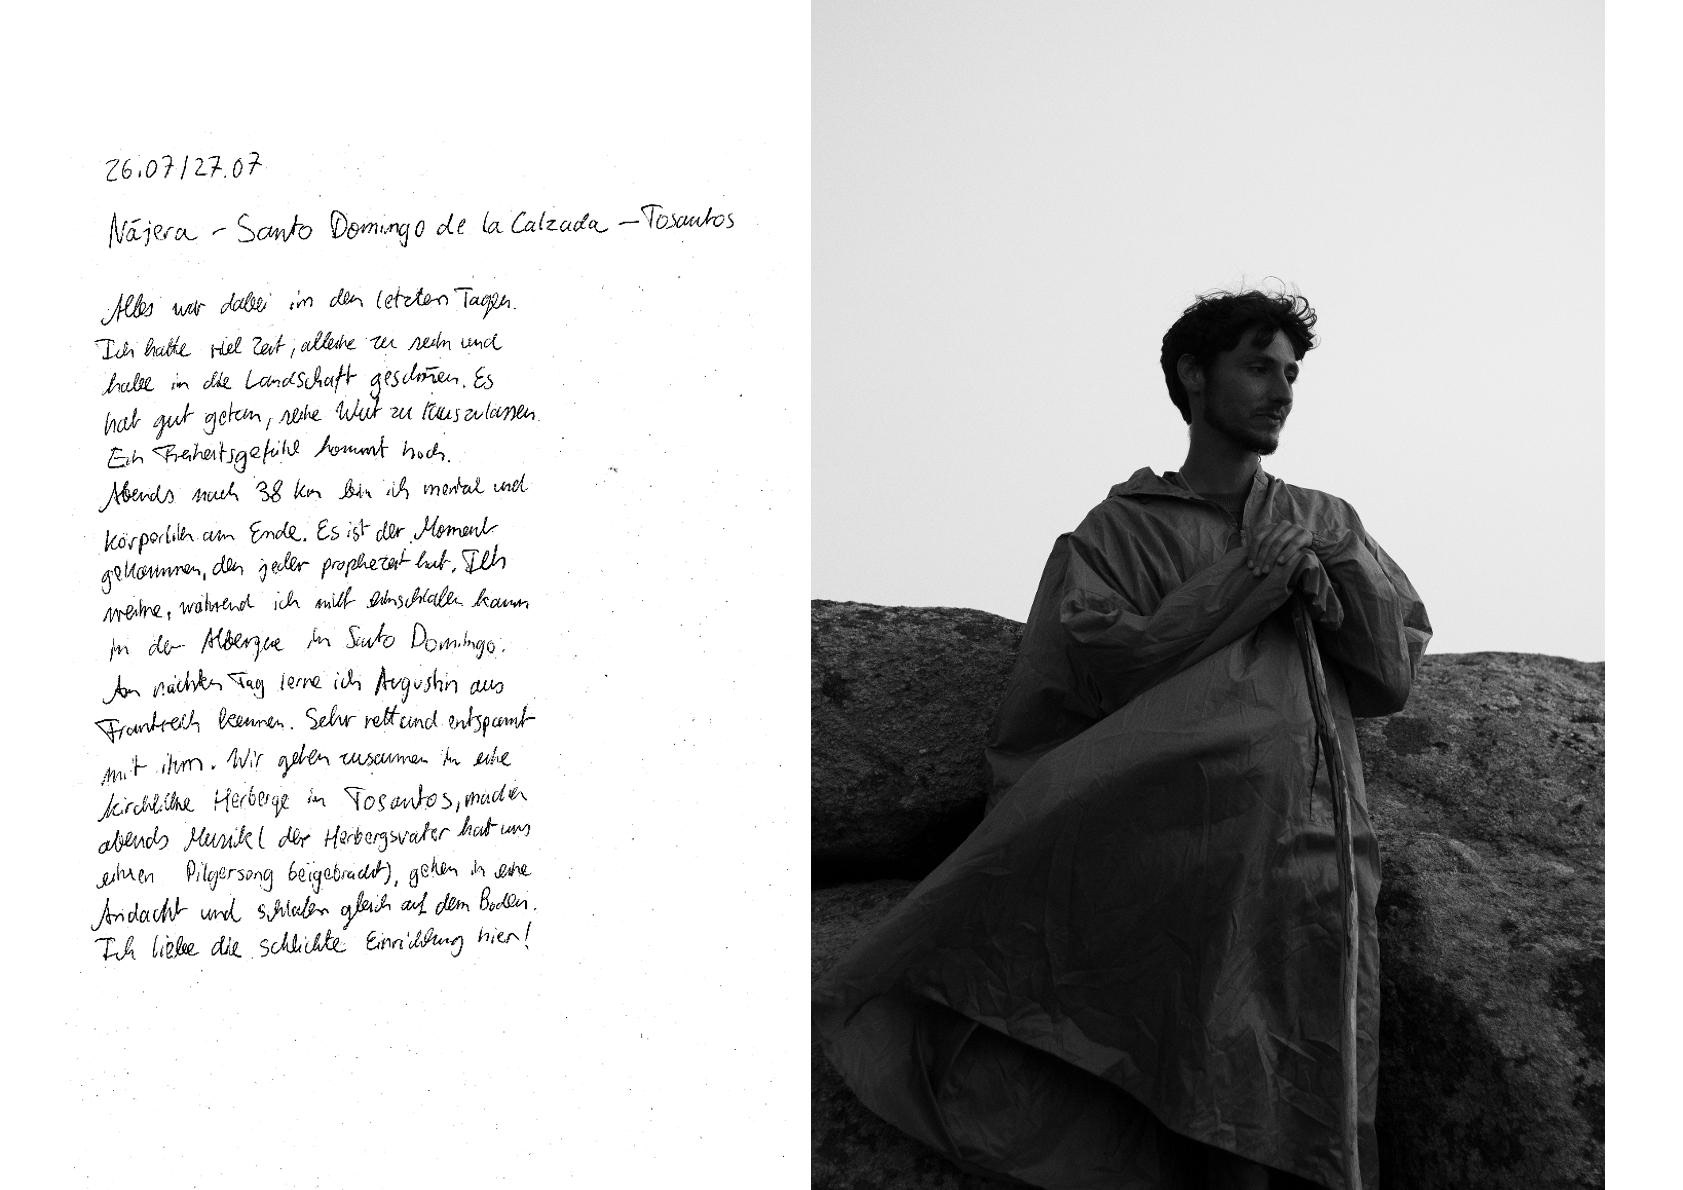 26.07/27.07
Nájera - Santo Domingo de la Calzada - Tosantos
Alles war dabei in den letzten Tagen.
Ich hatte viel Zeit, alleine zu sein und
habe in die Landschaft geschrien. Es
hat gut getan, seine Wut zu rauszulassen.
Ein Freiheitsgefühl kommt hoch.
Abends nach 38 km bin ich mental und
körperlich am Ende. Es ist der Moment
gekommen, den jeder prophezeit hat. Ich
weine, während ich nicht einschlafen kann
in der Albergue in Santo Domingo.
Am nächsten Tag lerne ich Augustin aus
Frankreich kennen. Sehr nett und entspannt
mit ihm. Wir gehen zusammen in eine
kirchliche Herberge in Tosantos, machen
abends Musik (der Herbergsvater hat uns
einen Pilgersong beigebracht), gehen in eine
Andacht und schlafen gleich auf dem Boden.
Ich liebe die schlichte Einrichtung hier!